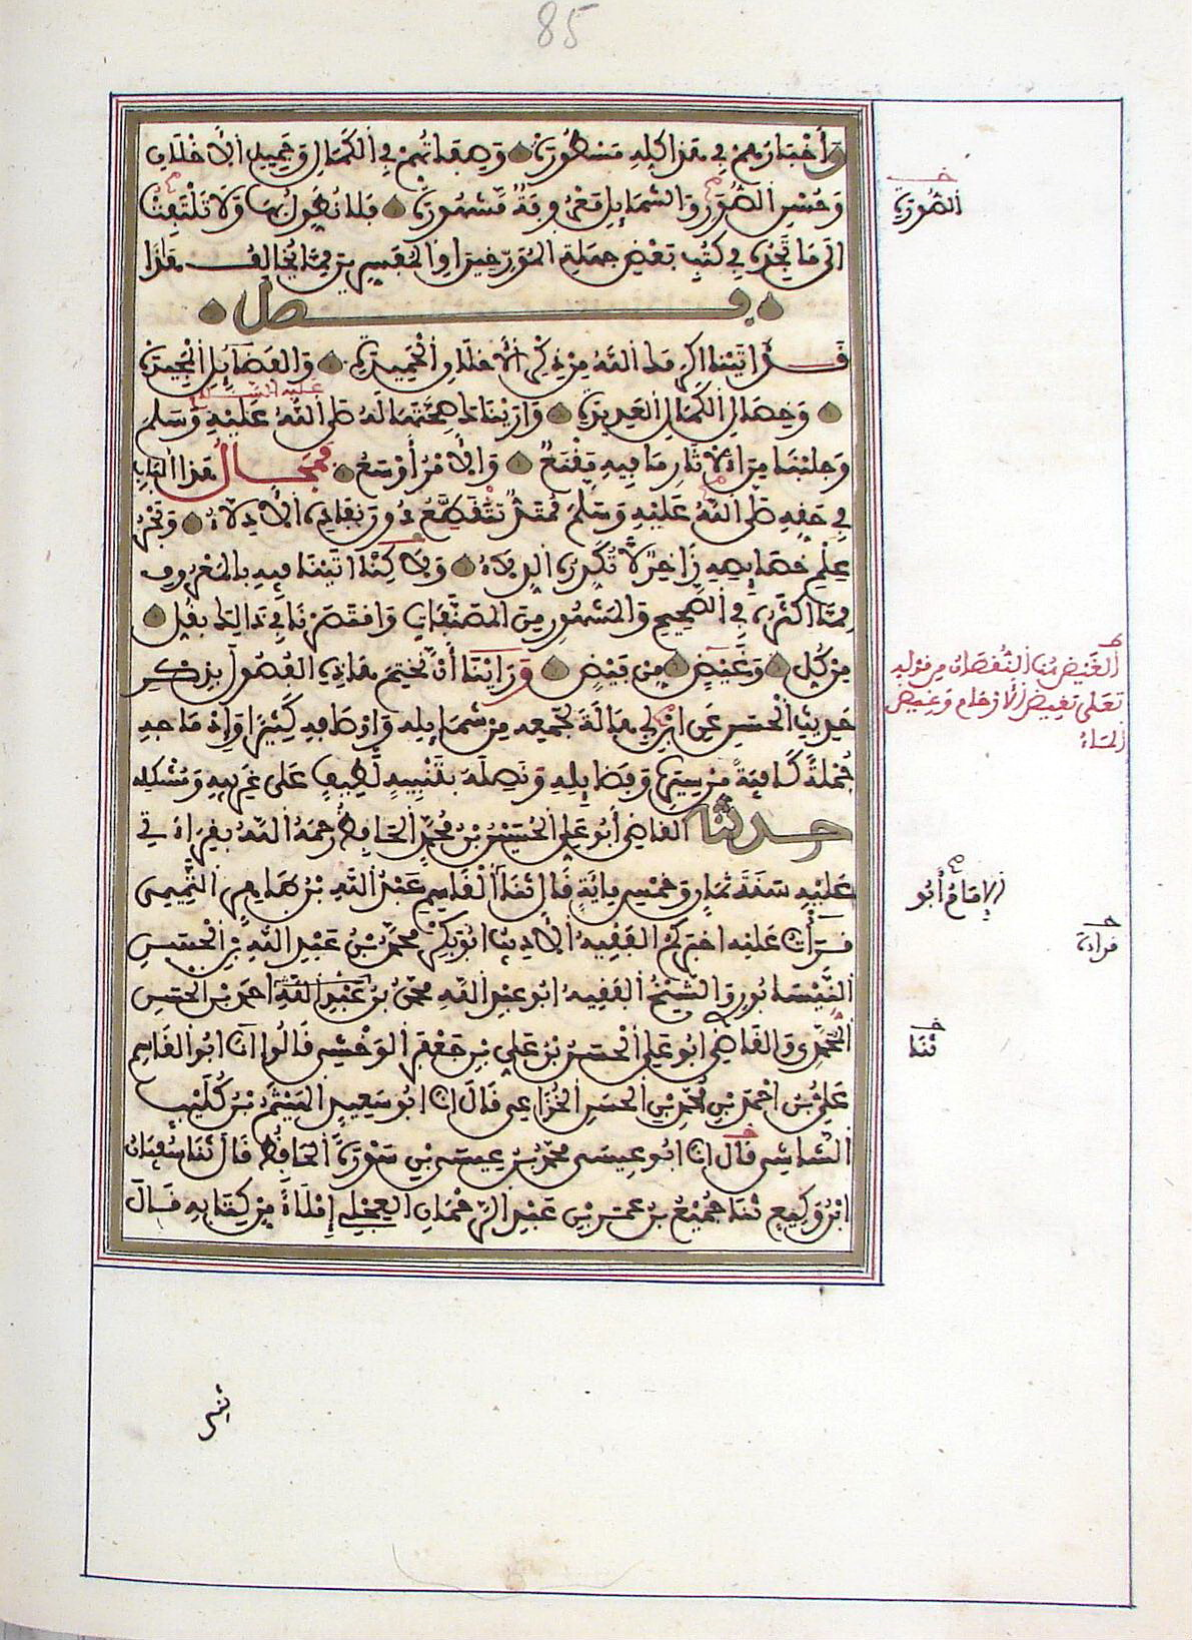 85
وَأَخْبَارُهُمْ فِي هَذَا كُلِّهِ مَسْطُورَةٌ وَصِفَاتُهُمْ فِي الْكَمَالِ وَجَمِيلِ الْأَخْلَاقِ
وَحُسْنِ الصُّوَرِ وَالشَّمَائِلِ مَعْرُوفَةٌ مَشْهُورَةٌ فَلَا نُطَوِّلُ بِهَا وَلَا تَلْتَفِتْ
إِلَى مَا تَجِدُهُ فِي كُتُبِ بَعْضِ جَهَلَةِ الْمُؤَرِّخِينَ وَالْمُفَسِّرِينَ مِمَّا يُخَالِفُ هَذَا
فصل
قد أتيناك أكرمك الله من ذكر الأخلاق الحميدة والفضائل المجيدة
وخصال الكمال العديدة وأريناك صحتها له صلى الله عليه وسلم
وجلبنا من الآثار ما فيه مقنع والأمر أوسع فمجال هذا الباب
في حقه صلى الله عليه وسلم ممتد تنقطع دون نفاده الأدلاء وبحر
علم خصائصه زاخر لا تكدره الدلاء ولاكنا أتينا فيه بالمعروف
مما أكثره في الصحيح والمشهور من المصنفات واقتصرنا في ذلك بقل
من كل وغيض من فيض ورأينا أن نختم هذه الفصول بذكر
حديث الحسن عن ابن أبي هالة لجمعه من شمائله وأوصافه كثيرا وإدماجه
جملة كافية من سيره وفضائله ونصله بتنبيه لطيف على غريبه ومشكله
حدثنا القاضي أبو علي الحسين بن محمد الحافظ رحمه الله بقراءتي
عليه سنة ثمان وخمس مائة قال ثنا أبو القاسم عبد الله بن طاهر التميمي
قرأت عليه أخبركم الفقيه الأديب أبو بكر محمد بن عبد الله بن الحسن
النيسابوري والشيخ الفقيه أبو عبد الله محمد بن أحمد بن الحسن
المحمدي والقاضي أبو علي الحسن بن علي بن جعفر الوخشي قالوا انا أبو القاسم
علي بن أحمد بن محمد بن الحسن الخزاعي قال انا أبو سعيد الهيثم بن كليب
الشاشي قال انا أبو عيسى محمد بن عيسى بن سورة الحافظ قال ثنا سفيان
ابن وكيع ثنا جميع بن عمر بن عبد الرحمان العجلي إملاء من كتابه قال
الصورة
الغيض هنا النقصان من قوله
تعلى تغيض الأرحام وغيض
الماء
الإمام أبو
ثنا